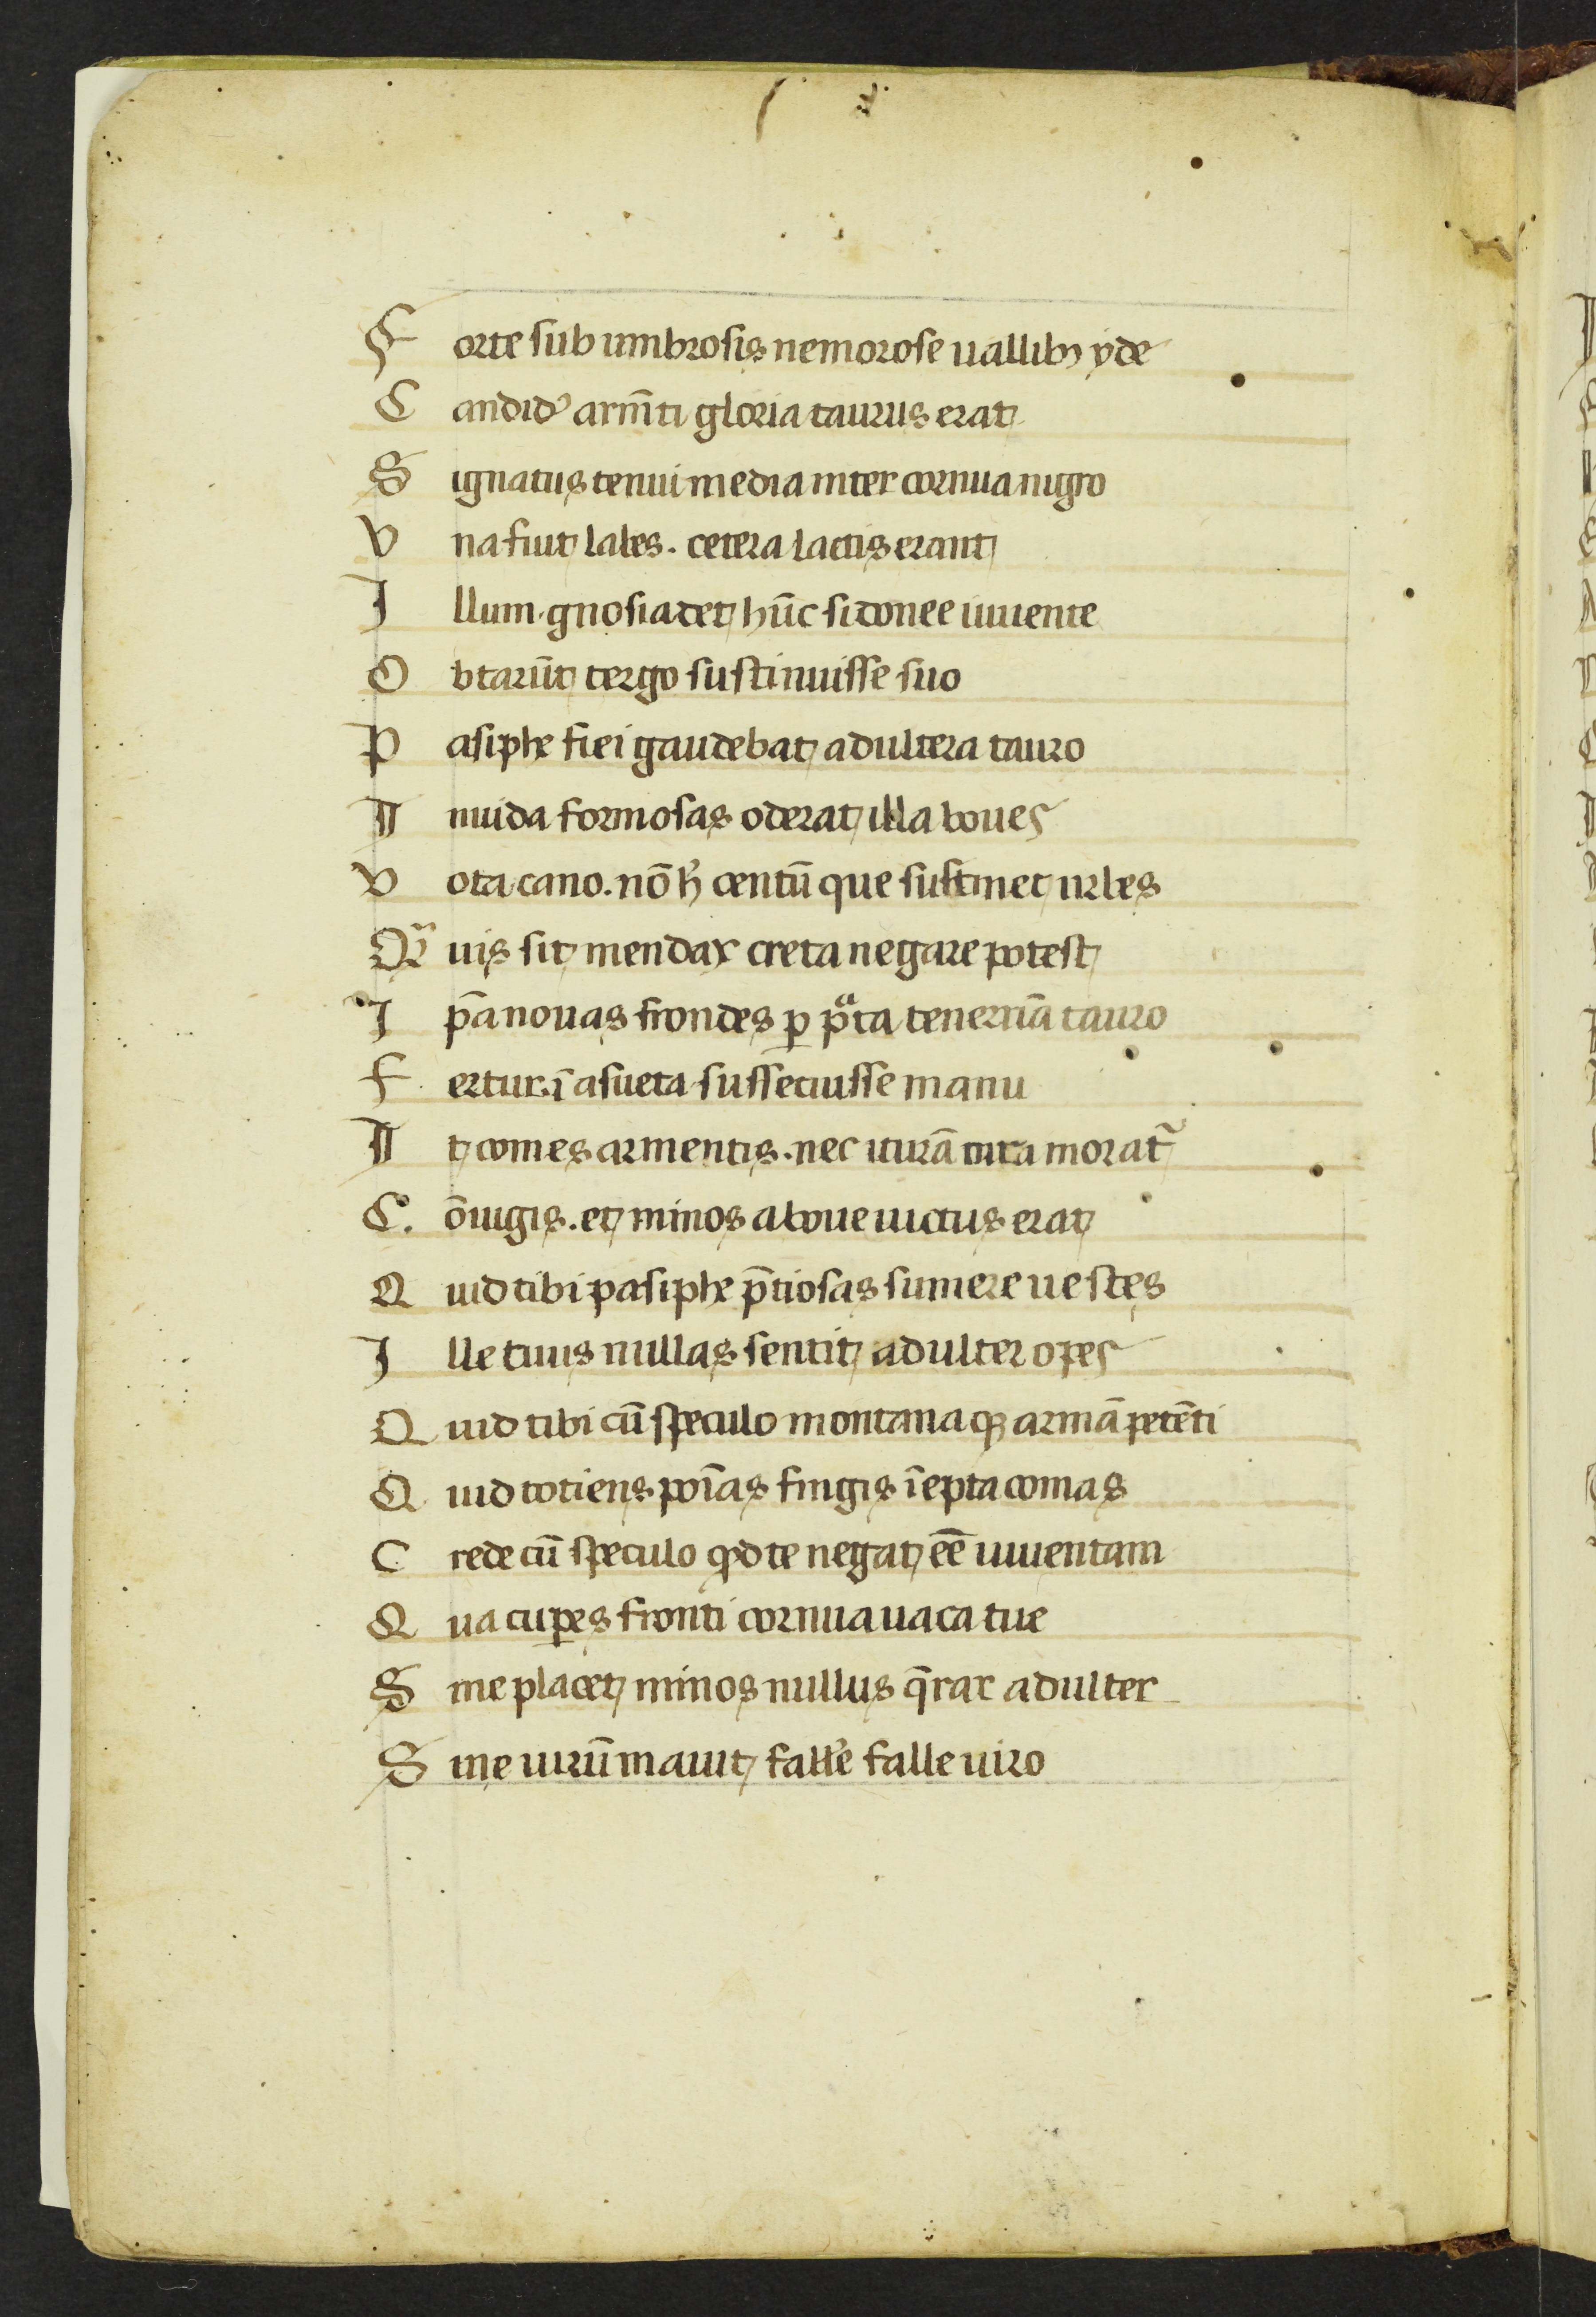 Forte sub umbrosis nemorose uallibꝫ yde
Candidꝰ arm̄ti gloria taurus erat
Signatus tenui media inter cornua nigro
Vna fiut labes. cetera lactis erant
Illum gnosiadet hūc sidonee iuuente
Obtarūt tergo sustinuisse suo
Pasiphe fiei gaudebat adultera tauro
Inuida formosas oderat illa boues
Vota cano. nō h̄ centū que sustinet urbes
Qͣuis sit mendax creta negare potest
Ip̄a nouas frondes ꝑ pͣta tenerriā tauro
Fertur ī asueta sussecuisse manu
It comes armentis. nec iturā cura morat᷑
Cōiugis. et minos a boue uictus erat
Quid tibi pasiphe p̄tiosas sumere uestes
Ille tuus nullas sentit adulter opes
Quid tibi cū speculo montana qꝫ armā petēti
Quid totiens poīas fingis īepta comas
Crede cū speculo qd te negat eē iuuentam
Qua cuꝑes fronti cornua uaca tue
Sine placet minos nullus q̄rar adulter
Sine uirū mauit fall'e falle uiro